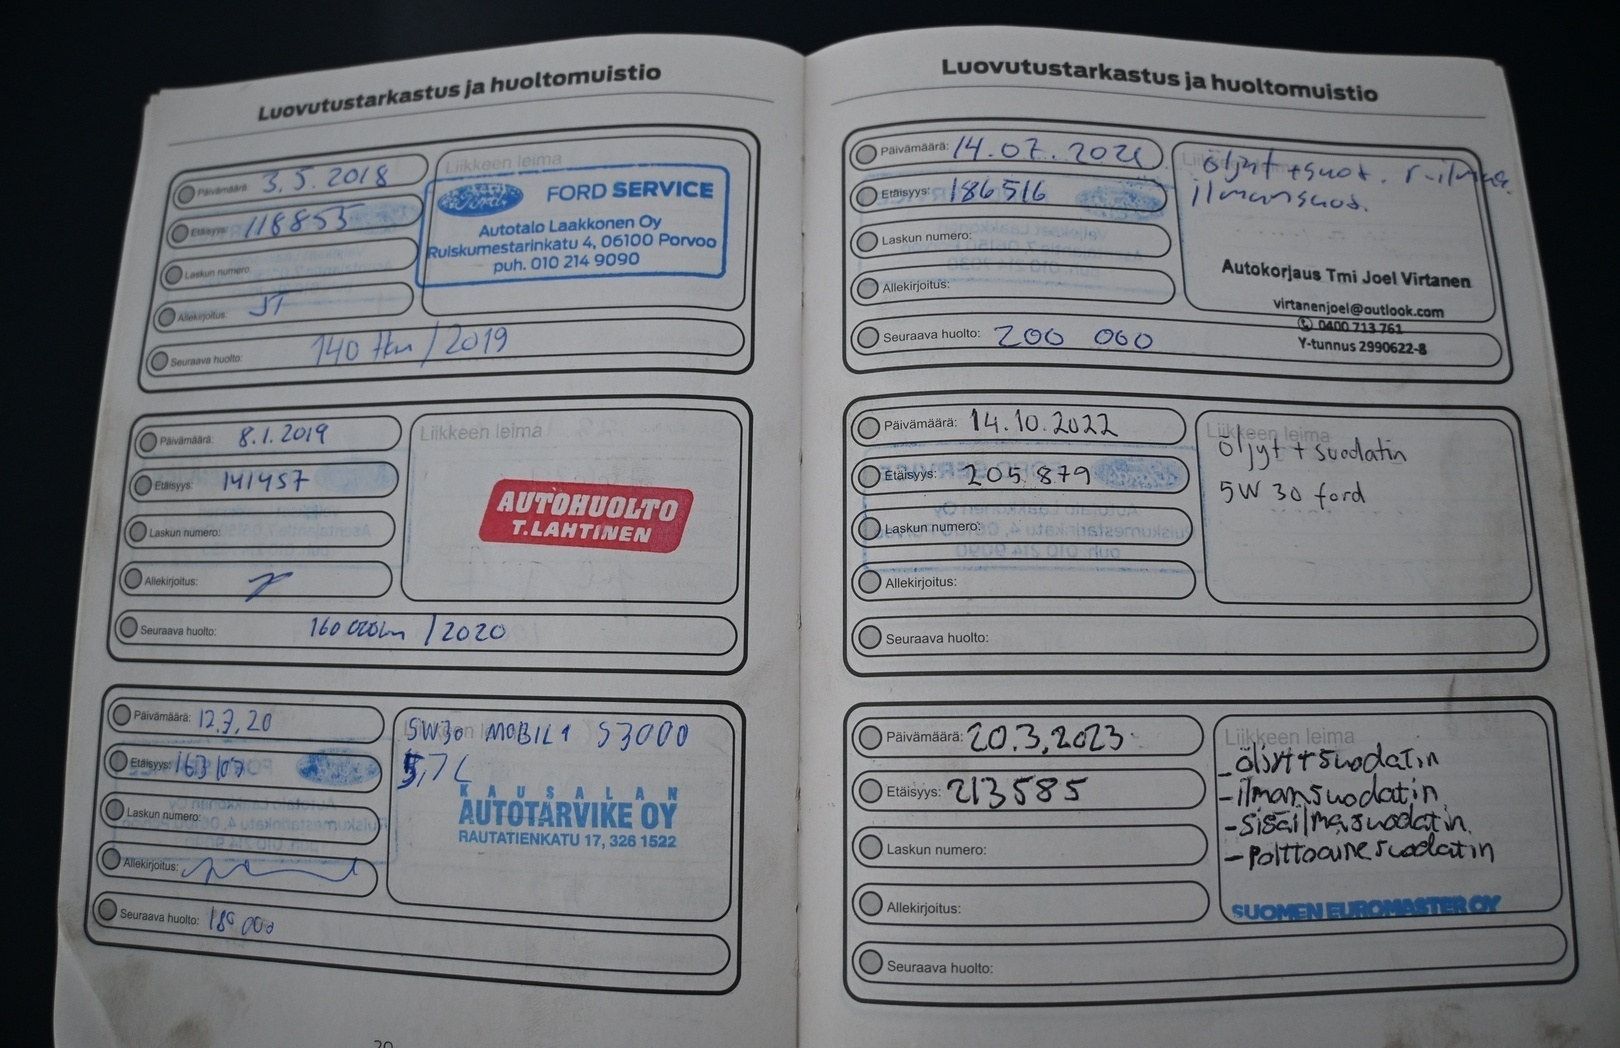 Luovutustarkastus ja huoltomuistio
Päivämäärä: 3.5.2018
Etäisyys: 118855
Laskun numero:
Allekirjoitus: JT
Seuraava huolto: 140 tkm/2019
Liikkeen leima
Ford FORD SERVICE
Autotalo Laakkonen Oy
Ruiskumestarinkatu 4, 06100 Porvoo
puh. 010 214 9090
Päivämäärä: 8.1.2019
Etäisyys: 141457
Laskun numero:
Allekirjoitus:
Seuraava huolto: 160 000km/2020
Liikkeen leima
AUTOHUOLTO
T.LAHTINEN
Päivämäärä: 12.3.20
Etäisyys: 163107
Laskun numero:
Allekirjoitus:
Seuraava huolto: 180 000
Liikkeen leima
5W30 MOBIL 1 53000
5,7L
KAUSALAN
AUTOTARVIKE OY
RAUTATIENKATU 17, 326 1522
20
Luovutustarkastus ja huoltomuistio
Päivämäärä: 14.07.2021
Etäisyys: 186516
Laskun numero:
Allekirjoitus:
Seuraava huolto: 200 000
öljyt +suot. r-ilma
ilmansuod.
Autokorjaus Tmi Joel Virtanen
virtanenjoel@outlook.com
0400 713 761
Y-tunnus 2990622-8
Päivämäärä: 14.10.2022
Etäisyys: 205.879
Laskun numero:
Allekirjoitus:
Seuraava huolto:
Liikkeen leima
öljyt + suodatin
5W 30 ford
Päivämäärä: 20.3.2023
Etäisyys: 213585
Laskun numero:
Allekirjoitus:
Seuraava huolto:
Liikkeen leima
- öljyt+suodatin
- ilmansuodatin
- sisäilmasuodatin
- polttoainesuodatin
SUOMEN EUROMASTER OY